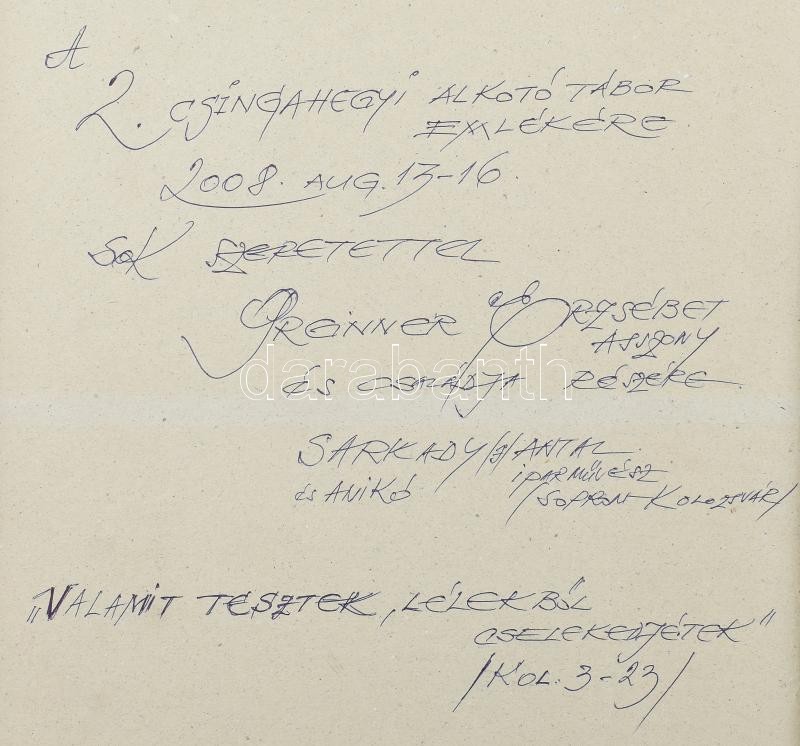 A
2. CSINGAHEGYI ALKOTÓ TÁBOR
EMLÉKÉRE
2008. AUG. 13-16.
SOK SZERETETTEL
GREINNER ERZSÉBET
ASSZONY
ÉS CSALÁDJA RÉSZÉRE
SARKADY /S/ ANTAL
IPARMŰVÉSZ
ÉS ANIKÓ
/SOPRON-KOLOZSVÁR/
„VALAMIT TESZTEK, LÉLEKBŐL
CSELEKEDJÉTEK"
/KOL. 3-23/
darabanth